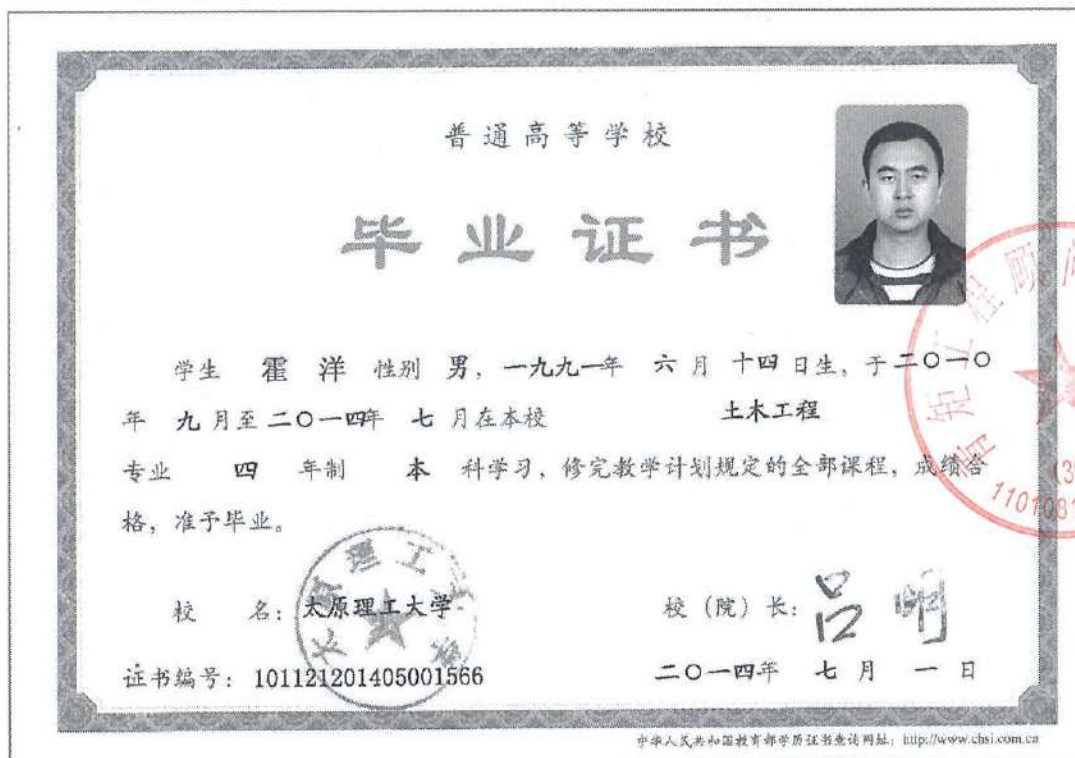 普通高等学校
毕业证书
学生 霍 洋 性别 男，一九九一年 六 月 十四 日生，于二〇一〇
年 九 月至 二〇一四年 七 月在本校 土木工程
专业 四 年制 本 科学习，修完教学计划规定的全部课程，成绩合
格，准予毕业。
校 名：太原理工大学
校（院）长：吕明
证书编号：101121201405001566
二〇一四年 七 月 一 日
中华人民共和国教育部学历证书查询网址：http://www.chsi.com.cn
太原理工大学
工程顾
1101081